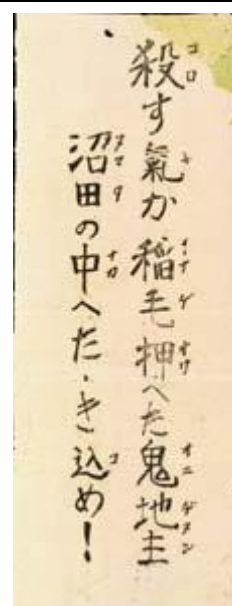 殺す氣か稲毛押へた鬼地主
沼田の中へたゝき込め!